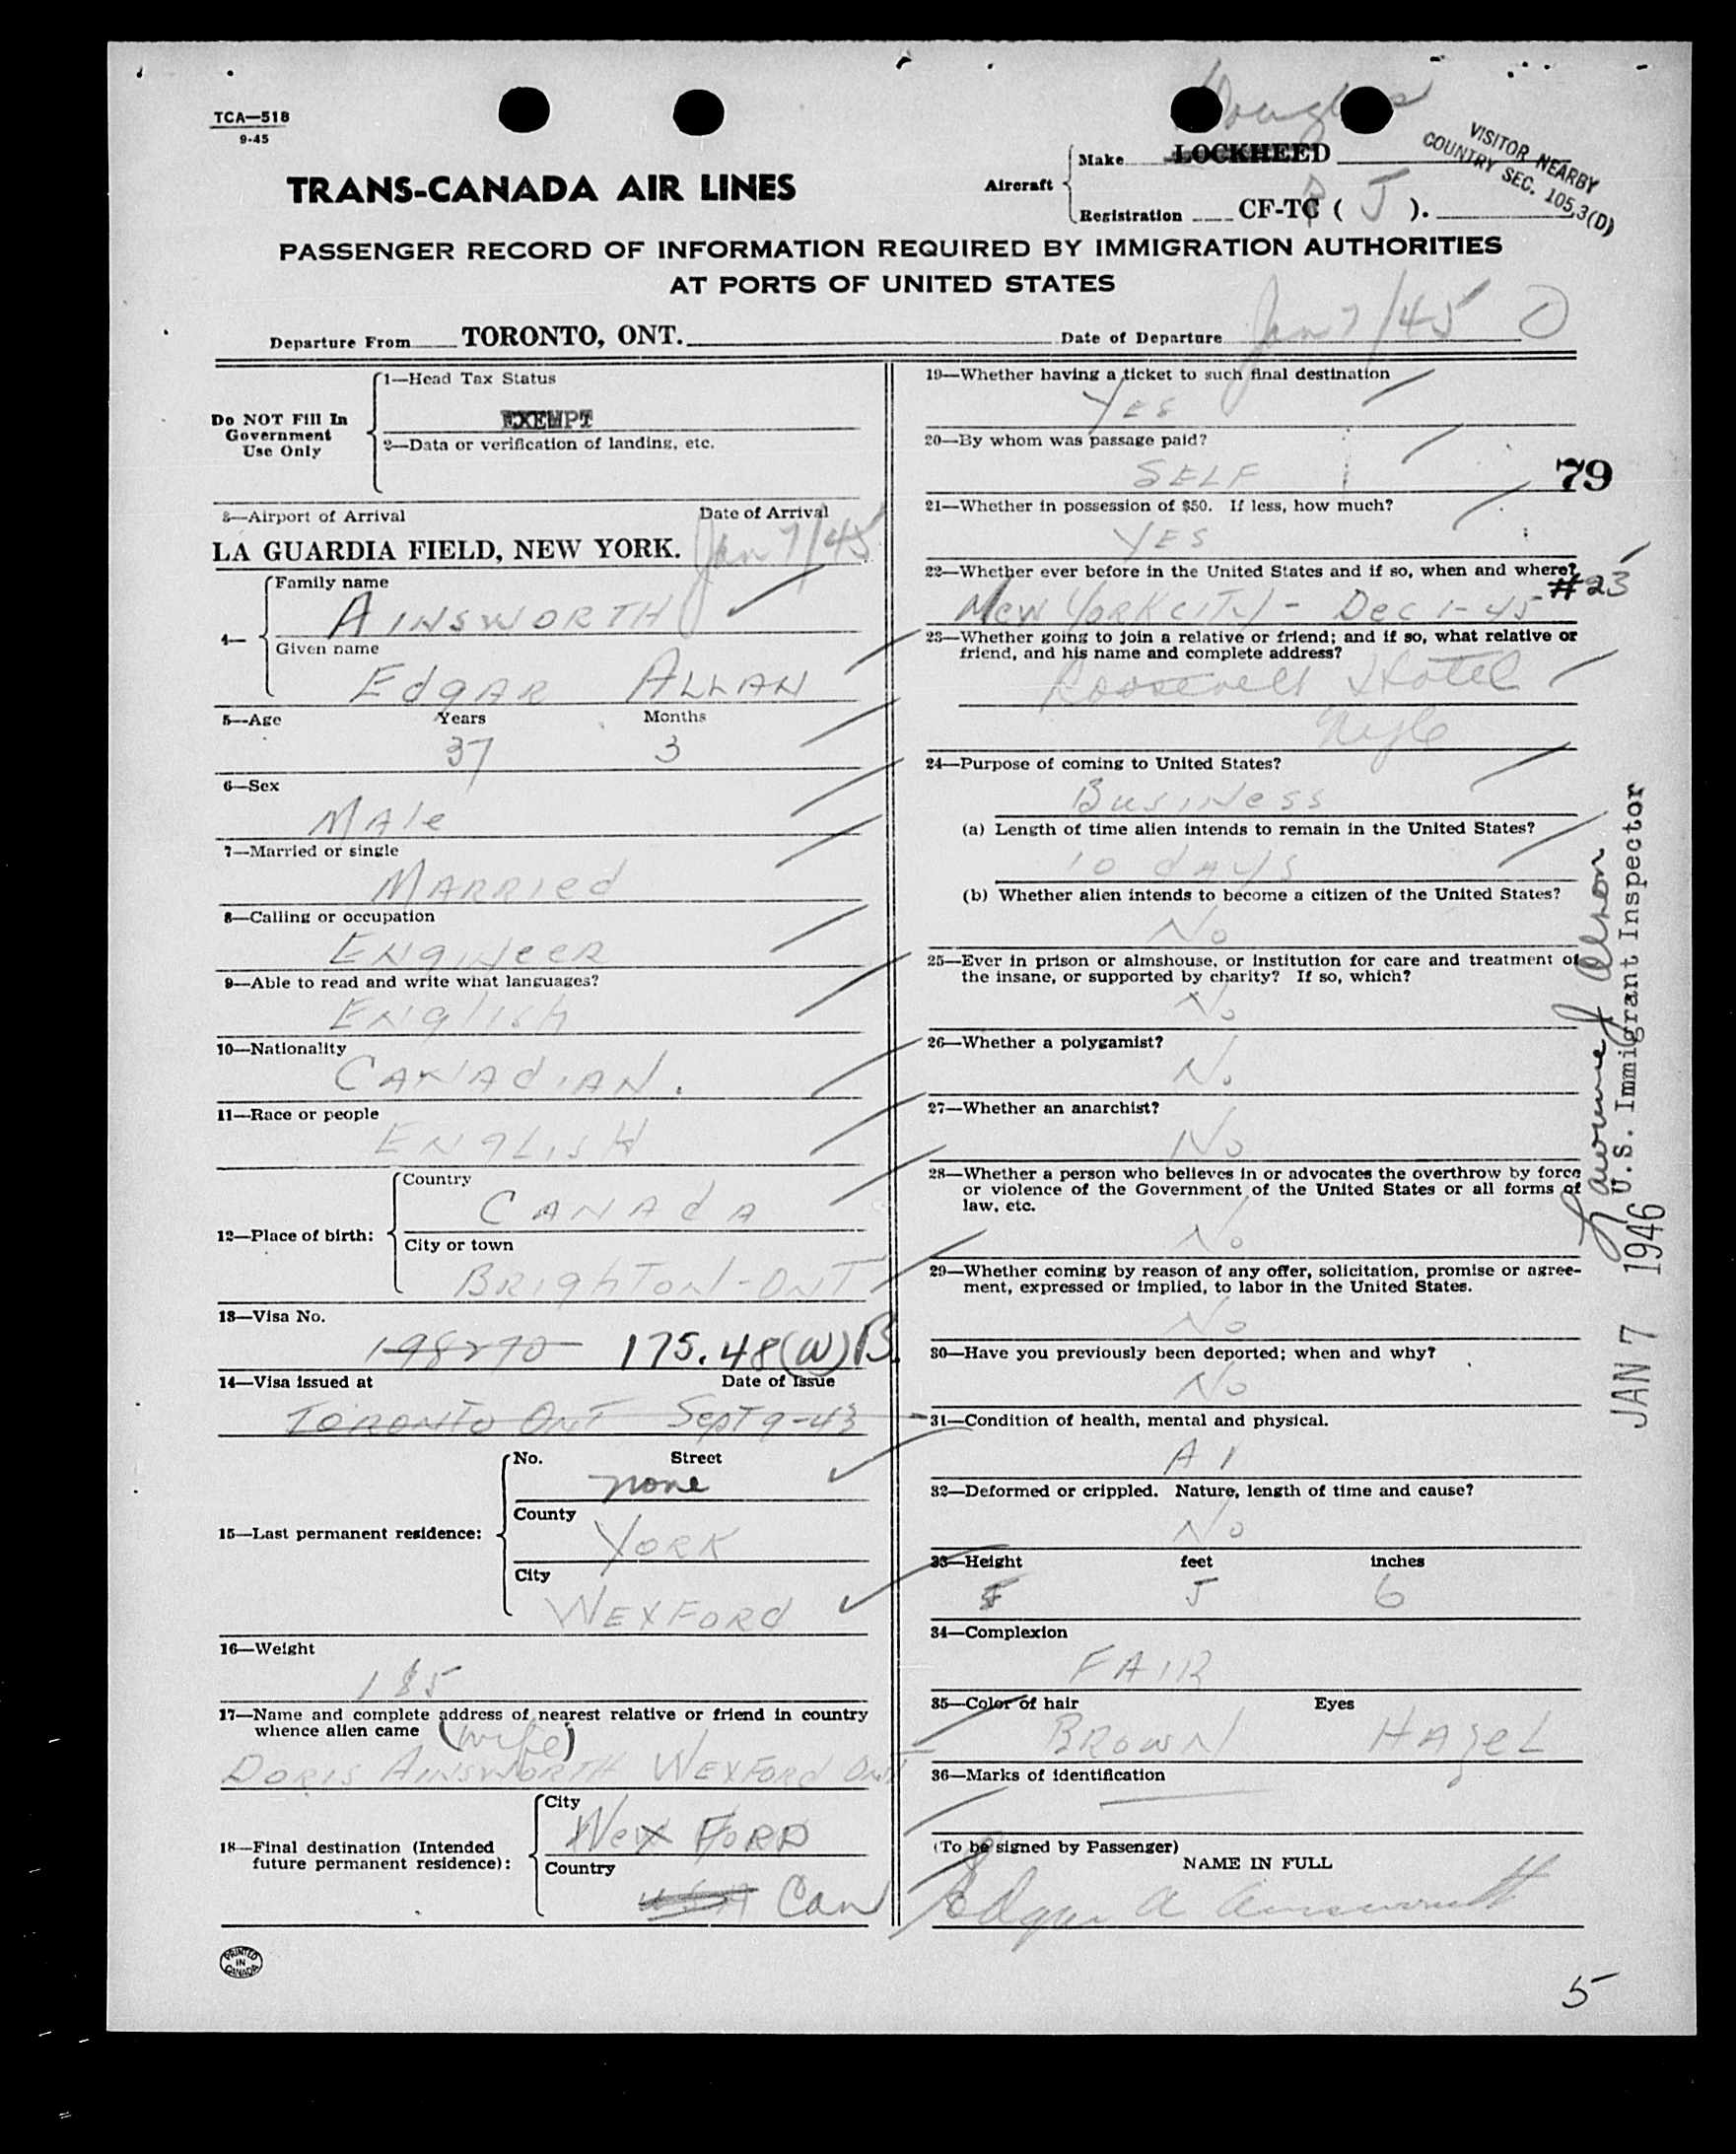 TCA—518
9-45
Douglas
TRANS-CANADA AIR LINES
Aircraft
Make LOCKHEED
Registration CF-TC ( J ).
VISITOR NEARBY
COUNTRY SEC. 105.3(D)
PASSENGER RECORD OF INFORMATION REQUIRED BY IMMIGRATION AUTHORITIES
AT PORTS OF UNITED STATES
Departure From TORONTO, ONT. Date of Departure Jan 7/45
Do NOT Fill In
Government
Use Only
1—Head Tax Status
EXEMPT
2—Data or verification of landing, etc.
3—Airport of Arrival Date of Arrival
LA GUARDIA FIELD, NEW YORK. Jan 7/45
4—
Family name
AINSWORTH
Given name
EdgAR ALLAN
5—Age Years Months
37 3
6—Sex
MAle
7—Married or single
MARRIed
8—Calling or occupation
ENgINeeR
9—Able to read and write what languages?
ENglish
10—Nationality
CANAdIAN.
11—Race or people
ENGLISH
12—Place of birth:
Country
CANAdA
City or town
BRIghTON-ONT
13—Visa No.
198270 175.48(W)B.
14—Visa issued at Date of Issue
TORONTO ONT SepT 9-43
15—Last permanent residence:
No. Street
none
County
YORK
City
WEXFORd
16—Weight
185
17—Name and complete address of nearest relative or friend in country
whence alien came (wife)
DORIS AINSWORTH WEXFORd ONT
18—Final destination (Intended
future permanent residence):
City
WeX FORD
Country
USA Can
PRINTED
IN
CANADA
19—Whether having a ticket to such final destination
YES
20—By whom was passage paid?
SELF
79
21—Whether in possession of $50. If less, how much?
YES
22—Whether ever before in the United States and if so, when and where?
#23
NeW YORK CITY - Dec 1-45
23—Whether going to join a relative or friend; and if so, what relative or
friend, and his name and complete address?
Roosevelt Hotel
24—Purpose of coming to United States?
BusINess
(a) Length of time alien intends to remain in the United States?
10 dAYS
(b) Whether alien intends to become a citizen of the United States?
No
25—Ever in prison or almshouse, or institution for care and treatment of
the insane, or supported by charity? If so, which?
No
26—Whether a polygamist?
No
27—Whether an anarchist?
No
28—Whether a person who believes in or advocates the overthrow by force
or violence of the Government of the United States or all forms of
law, etc.
No
29—Whether coming by reason of any offer, solicitation, promise or agree-
ment, expressed or implied, to labor in the United States.
No
30—Have you previously been deported; when and why?
No
31—Condition of health, mental and physical.
A 1
32—Deformed or crippled. Nature, length of time and cause?
No
33—Height feet inches
5 6
34—Complexion
FAIR
35—Color of hair Eyes
BROWN HAzeL
36—Marks of identification
(To be signed by Passenger)
NAME IN FULL
Edgar A Ainsworth
5
U.S. Immigrant Inspector
JAN 7 1946